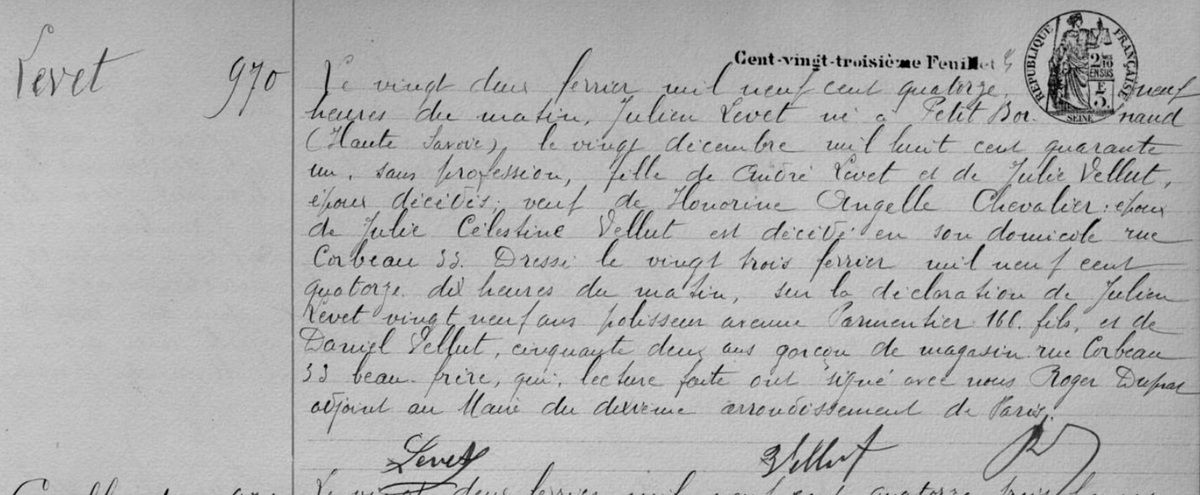 Cent-vingt-troisième Feuillet
RÉPUBLIQUE FRANÇAISE
2/10 EN SUS
SEINE
Levet 970 Le vingt deux ferrier mil neuf cent quatorze, neuf
heures du matin, Julien Levet né à Petit Bor nand
(Haute Savoie), le vingt décembre mil huit cent quarante
un, sans profession, fille de André Levet et de Julie Vellut,
époux décédés; veuf de Honorine Angelle Chevalier; époux
de Julie Célestine Vellut est décédé en son domicile rue
Corbeau 33. Dressé le vingt trois ferrier mil neuf cent
quatorze dix heures du matin, sur la déclaration de Julien
Levet vingt neuf ans polisseur avenue Parmentier 166. fils, et de
Daniel Vellut, cinquante deux ans garçon de magasin rue Corbeau
33 beau-frère, qui, lecture faite ont signé avec nous Roger
adjoint au Maire du dixième arrondissement de Paris.
Levet Vellut
Le vingt deux ferrier mil neuf cent quatorze